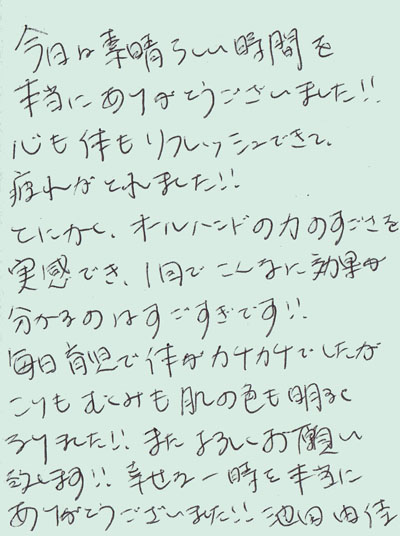 今日は素晴らしい時間を
本当にありがとうございました!!
心も体もリフレッシュできて、
疲れがとれました!!
とにかく、オールハンドの力のすごさを
実感でき、1回でこんなに効果が
分かるのはすごすぎです!!
毎日育児で体がカチカチでしたが
こりもむくみも肌の色も明るく
なりました!! またよろしくお願い
致します!! 幸せな一時を本当に
ありがとうございました!! 池田由佳